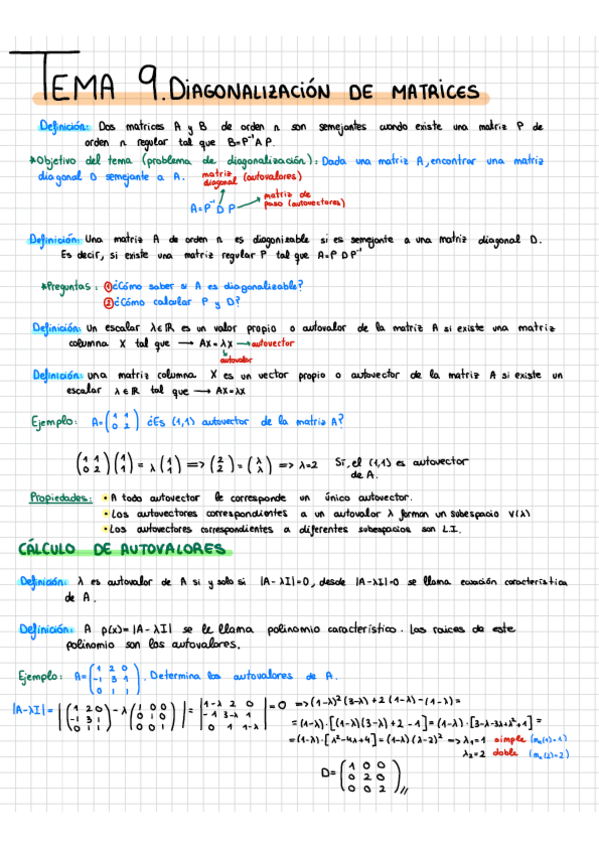 TEMA 9. DIAGONALIZACIÓN DE MATRICES
Definición: Dos matrices A y B de orden n son semejantes cuando existe una matriz P de
orden n regular tal que B=P⁻¹AP.
*Objetivo del tema (problema de diagonalización): Dada una matriz A, encontrar una matriz
diagonal D semejante a A. matriz diagonal (autovalores)
A=P⁻¹DP → matriz de paso (autovectores)
Definición: Una matriz A de orden n es diagonizable si es semejante a una matriz diagonal D.
Es decir, si existe una matriz regular P tal que A=PDP⁻¹
*Preguntas: ① ¿Cómo saber si A es diagonalizable?
② ¿Cómo calcular P y D?
Definición: Un escalar λ∈ℝ es un valor propio o autovalor de la matriz A si existe una matriz
columna X tal que → AX=λX → autovector
autovalor
Definición: una matriz columna X es un vector propio o autovector de la matriz A si existe un
escalar λ∈ℝ tal que → AX=λX
Ejemplo: A=(1 1 / 0 2) ¿Es (1,1) autovector de la matriz A?
(1 1 / 0 2)(1 / 1) = λ(1 / 1) => (2 / 2) = (λ / λ) => λ=2 Sí, el (1,1) es autovector
de A.
Propiedades: • A todo autovector le corresponde un único autovector.
• Los autovectores correspondientes a un autovalor λ forman un subespacio V(λ)
• Los autovectores correspondientes a diferentes subespacios son L.I.
CÁLCULO DE AUTOVALORES
Definición: λ es autovalor de A si y solo si |A-λI|=0, desde |A-λI|=0 se llama ecuación característica
de A.
Definición: A p(x)=|A-λI| se le llama polinomio característico. Las raíces de este
polinomio son los autovalores.
Ejemplo: A=(1 2 0 / -1 3 1 / 0 1 1). Determina los autovalores de A.
|A-λI| = |(1 2 0 / -1 3 1 / 0 1 1) - λ(1 0 0 / 0 1 0 / 0 0 1)| = |1-λ 2 0 / -1 3-λ 1 / 0 1 1-λ| = 0 => (1-λ)²(3-λ)+2(1-λ)-(1-λ)=
=(1-λ)·[(1-λ)(3-λ)+2-1]=(1-λ)·[3-λ-3λ+λ²+1]=
=(1-λ)·[λ²-4λ+4]=(1-λ)(λ-2)² => λ₁=1 simple (mₐ(1)=1)
λ₂=2 doble (mₐ(2)=2)
D=(1 0 0 / 0 2 0 / 0 0 2)//